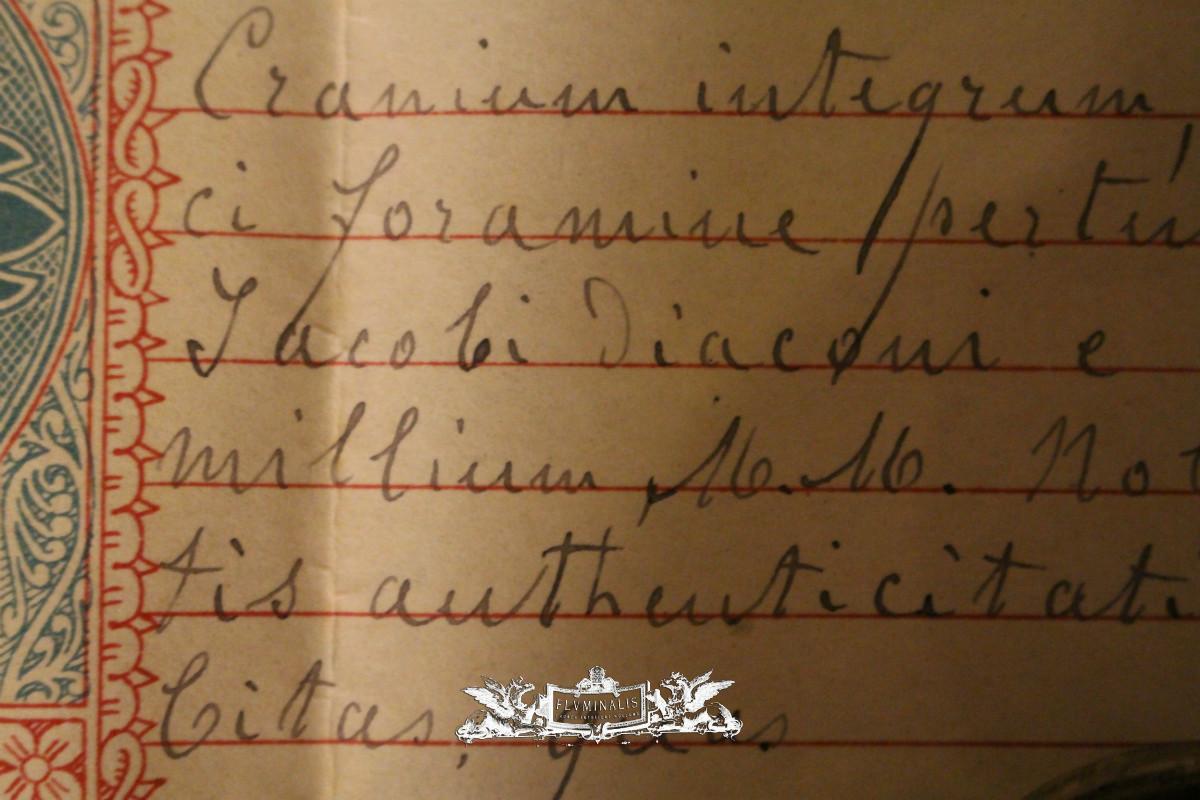 Cranium integrum
ci foramine pertu
Jacobi Diaconi e
millium M.M. Not
tis authenticitati
bitas, quas
FLVMINALIS